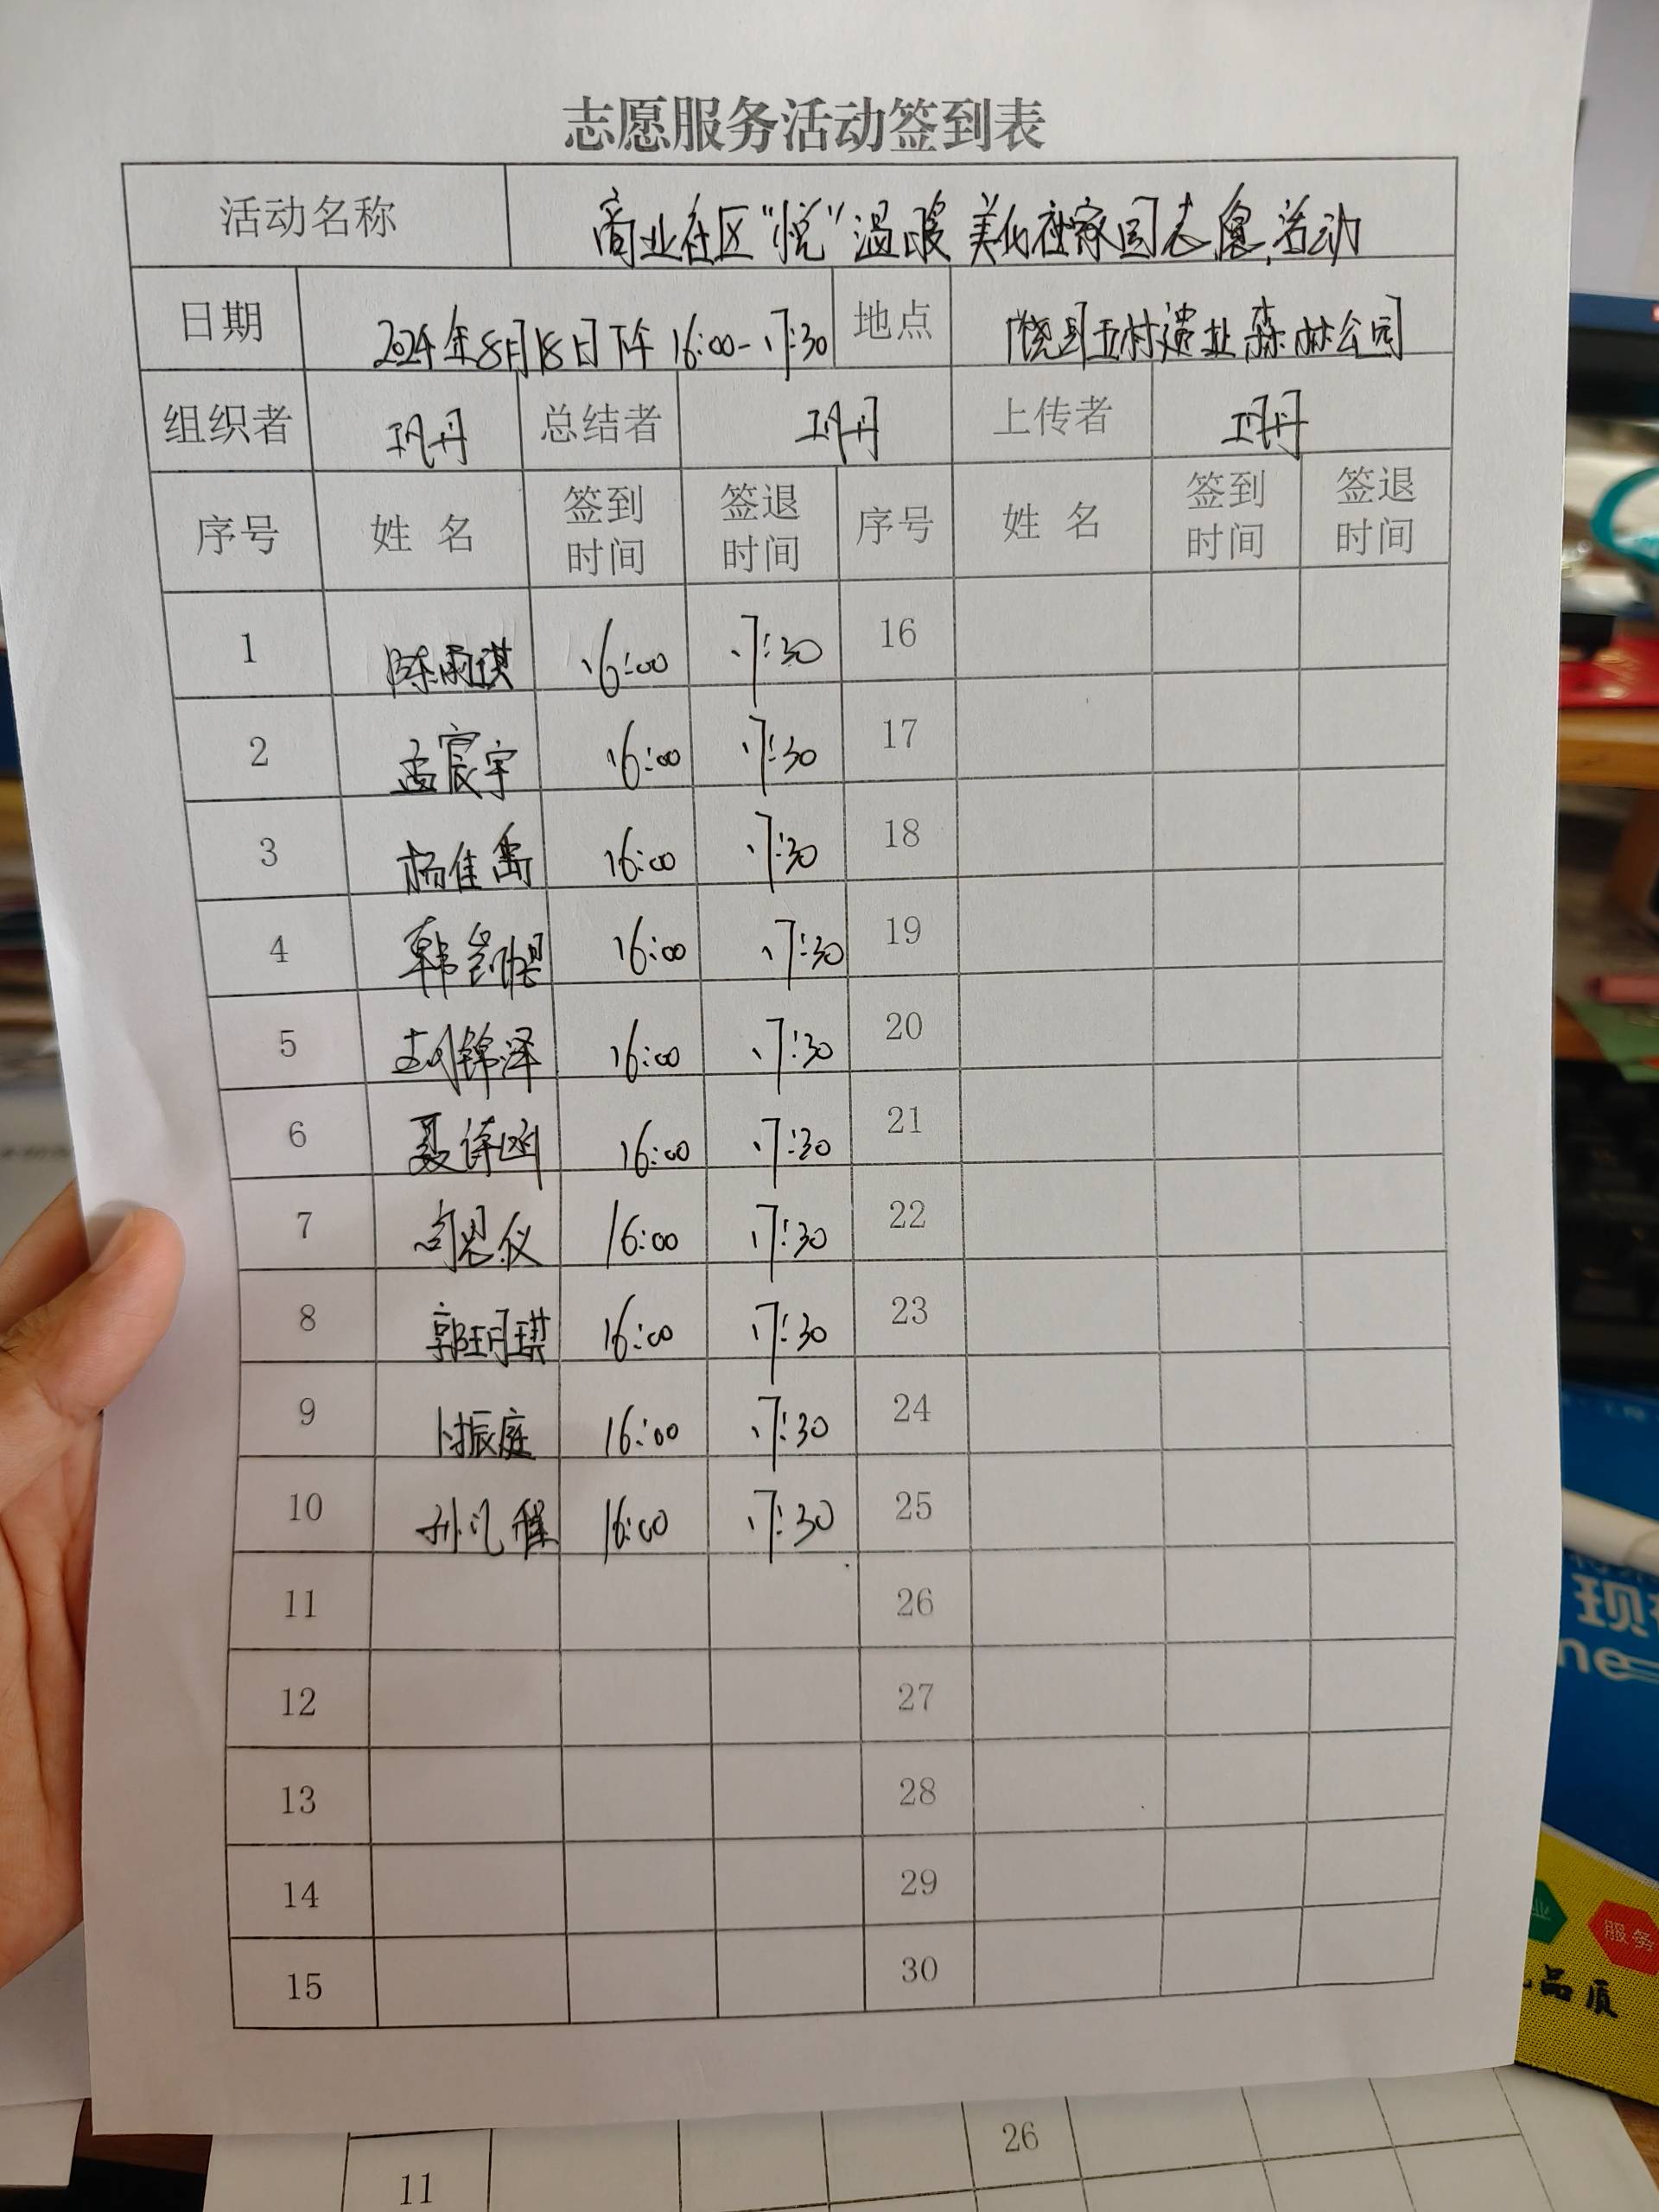 志愿服务活动签到表
活动名称 商业社区“悦”温暖 美化社家园志愿活动
日期 2024年8月18日下午 16:00-17:30 地点 广饶县五村遗址森林公园
组织者 总结者 上传者
序号 姓名 签到时间 签退时间 序号 姓名 签到时间 签退时间
1 陈雨琪 16:00 17:30 16
2 孟宸宇 16:00 17:30 17
3 杨佳禹 16:00 17:30 18
4 韩 16:00 17:30 19
5 刘锦泽 16:00 17:30 20
6 聂译凶 16:00 17:30 21
7 向思仪 16:00 17:30 22
8 郭玥琪 16:00 17:30 23
9 付振庭 16:00 17:30 24
10 孙凡程 16:00 17:30 25
11 26
12 27
13 28
14 29
15 30
服务
品质
26
11